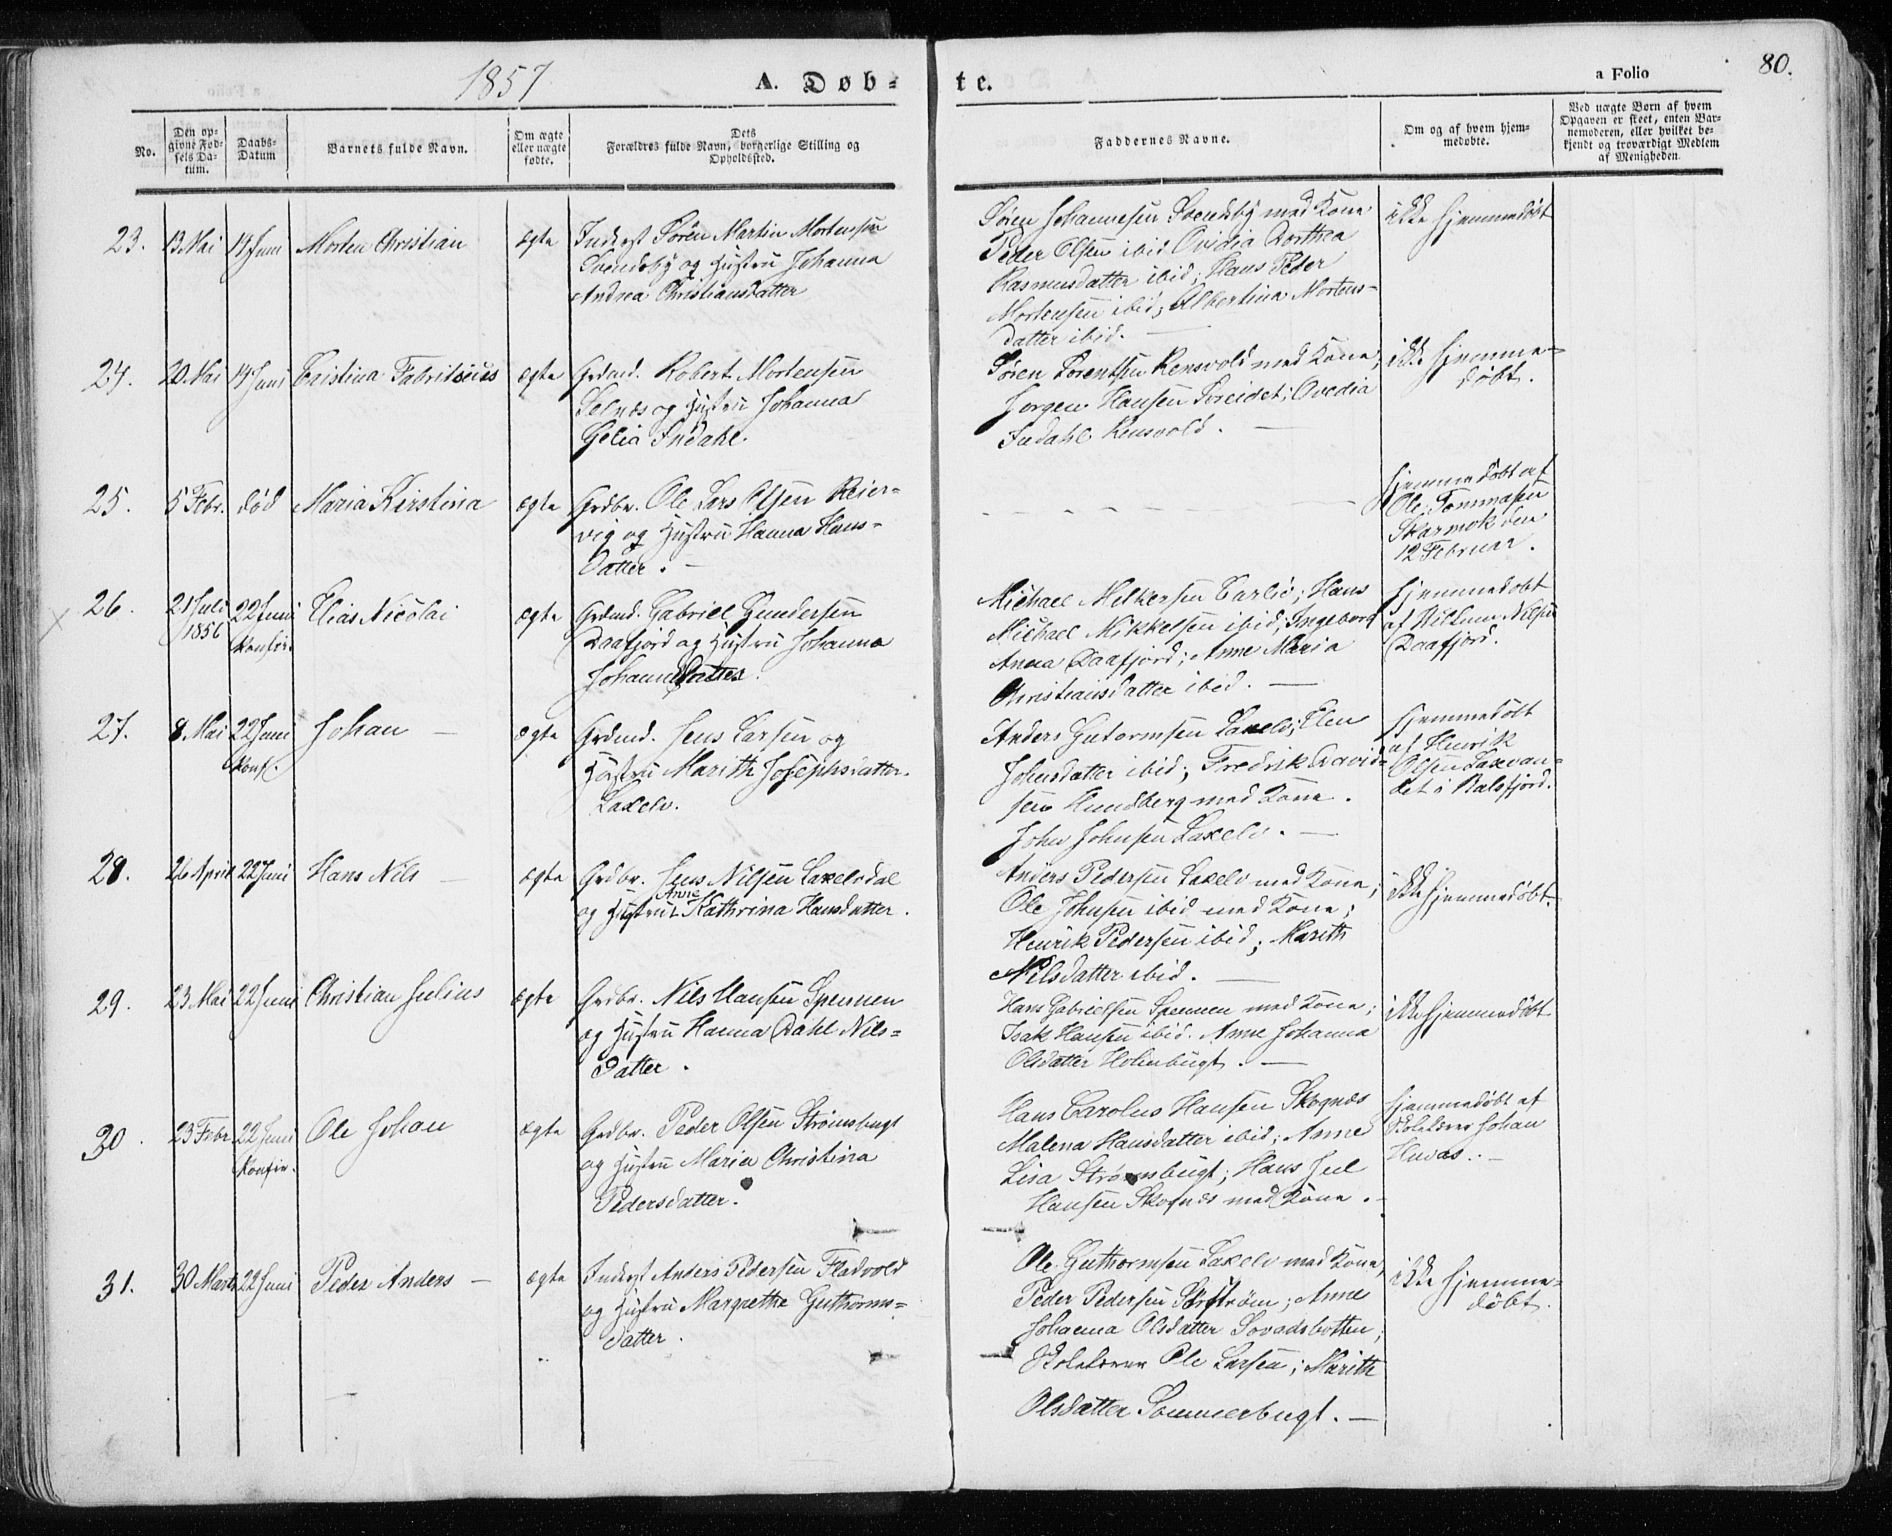 1857
A. Døb-
te.
a Folio
80.
No.
Den op-
givne Fød-
sels Da-
tum.
Daabs-
Datum
Barnets fulde Navn.
Om ægte
eller uægte
fødte.
Dets
Forældres fulde Navn, borgerlige Stilling og
Opholdssted.
Faddernes Navne.
Om og af hvem hjem-
medøbte.
Ved uægte Børn af hvem
Opgaven er skeet, enten Bar-
nemoderen, eller hvilket be-
kjendt og troværdigt Medlem
af Menigheden.
23.
13 Mai
14 Juni
Morten Christian
ægte
Inderst Sören Martin Mortensen
Svendsby og Hustru Johanna
Andrea Christiansdatter
Sören Johannesen Svendsby med Kone
Peder Olsen ibid Ovidia Dorthea
Rasmusdatter ibid; Hans Peder
Mortensen ibid; Albertina Mortens-
datter ibid. —
ikke hjemmedöbt
24.
20 Mai
14 Juni
Cristina Fabritsius
ægte
Grdmd. Robert Mortensen
Selnæs og Hustru Johanna
Gelia Indahl.
Sören Lorentsen Rensvold med Kone;
Jørgen Hansen Soreidet; Ovedia
Indahl Rensvold. —
ikke hjemme-
döbt.
25.
5 Febr.
død
Maria Kirstina
ægte
Grdbr. Ole Lars Olsen Reier-
vig og Hustru Hanna Hans-
datter. —
Hjemmedöbt af
Ole Tommasen
Skarmok den
12 Februar.
26.
21 Juli
1856
22 Juni
Konfir.
Elias Nicolai
ægte
Grdmd. Gabriel Gundersen
Daafjord og Hustru Johanna
Johannsdatter.
Michael Melkersen Carlsö; Hans
Michael Mikkelsen ibid; Ingeborg
Anna Daafjord; Anne Maria
Christiansdatter ibid. —
Hjemmedöbt
af Nilsen
Daafjord.
27.
8 Mai
22 Juni
Konf.
Johan —
ægte
Grdmd. Jens Larsen og
Hustru Marith Josephsdatter.
Laxelv.
Anders Gutormsen Laxelv; Elen
Johnsdatter ibid; Fredrik David-
sen Hundberg med Kone.
John Johnsen Laxelv. —
Hjemmedöbt
af Henrik
Olsen Laxvan-
det i Balsfjord.
28.
26 April
22 Juni
Hans Nils —
ægte
Grdbr. Jens Nilsen Laxelvdal
Anne
og Hustru Kathrina Hansdatter.
Anders Pedersen Laxelv med Kone;
Ole Johnsen ibid med Kone;
Henrik Pedersen ibid; Marith
Nilsdatter ibid. —
ikke hjemmedöbt.
29.
23 Mai
22 Juni
Christian Julius
ægte
Grdbr. Nils Hansen Spennen
og Hustru Hanna Dahl Nils-
datter.
Hans Gabrielsen Spennen med Kone;
Isak Hansen ibid. Anne Johanna
Olsdatter Holmbugt. —
ikke hjemmedöbt
30.
23 Febr
22 Juni
Konfir.
Ole Johan
ægte
Grdbr. Peder Olsen Strömsbugt
og Hustru Maria Christina
Pedersdatter.
Hans Carolus Hansen Skognæs
Malena Hansdatter ibid; Anne
Lisa Strömsbugt; Hans Juel
Hansen Skognæs med Kone.
Hjemmedöbt af
Skolelærer Johan
31.
30 Marts
22 Juni
Peder Anders —
ægte
Inderst Anders Pedersen Fladvold
og Hustru Margrethe Guthorms-
datter.
Ole Guthormsen Laxelv med Kone,
Peder Pedersen Sørström; Anne
Johanna Olsdatter Sovadsbotten,
Skolelærer Ole Larsen; Marith
Olsdatter Sommerbugt. —
ikke hjemme-
döbt.